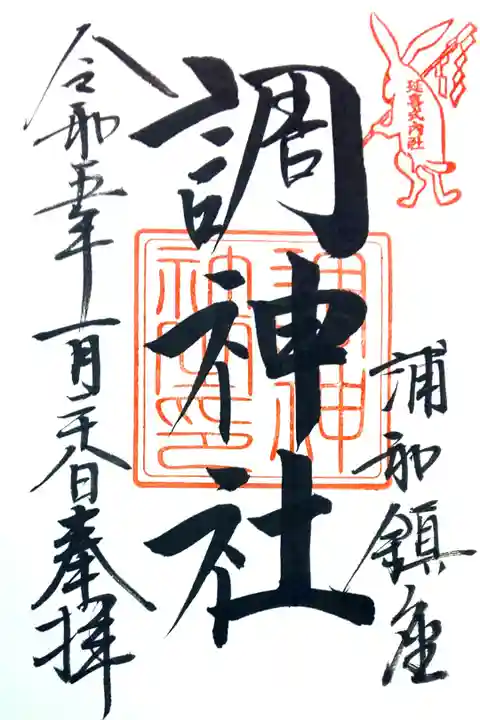 延喜式内社
浦和鎮座
調神社
調神社宝印
令和五年一月二十八日奉拝